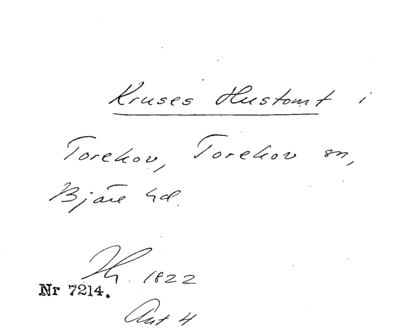 Kruses Hustomt i
Torekov, Torekov sn,
Bjäre hd.
Th. 1822
Nr 7214.
Ant 4